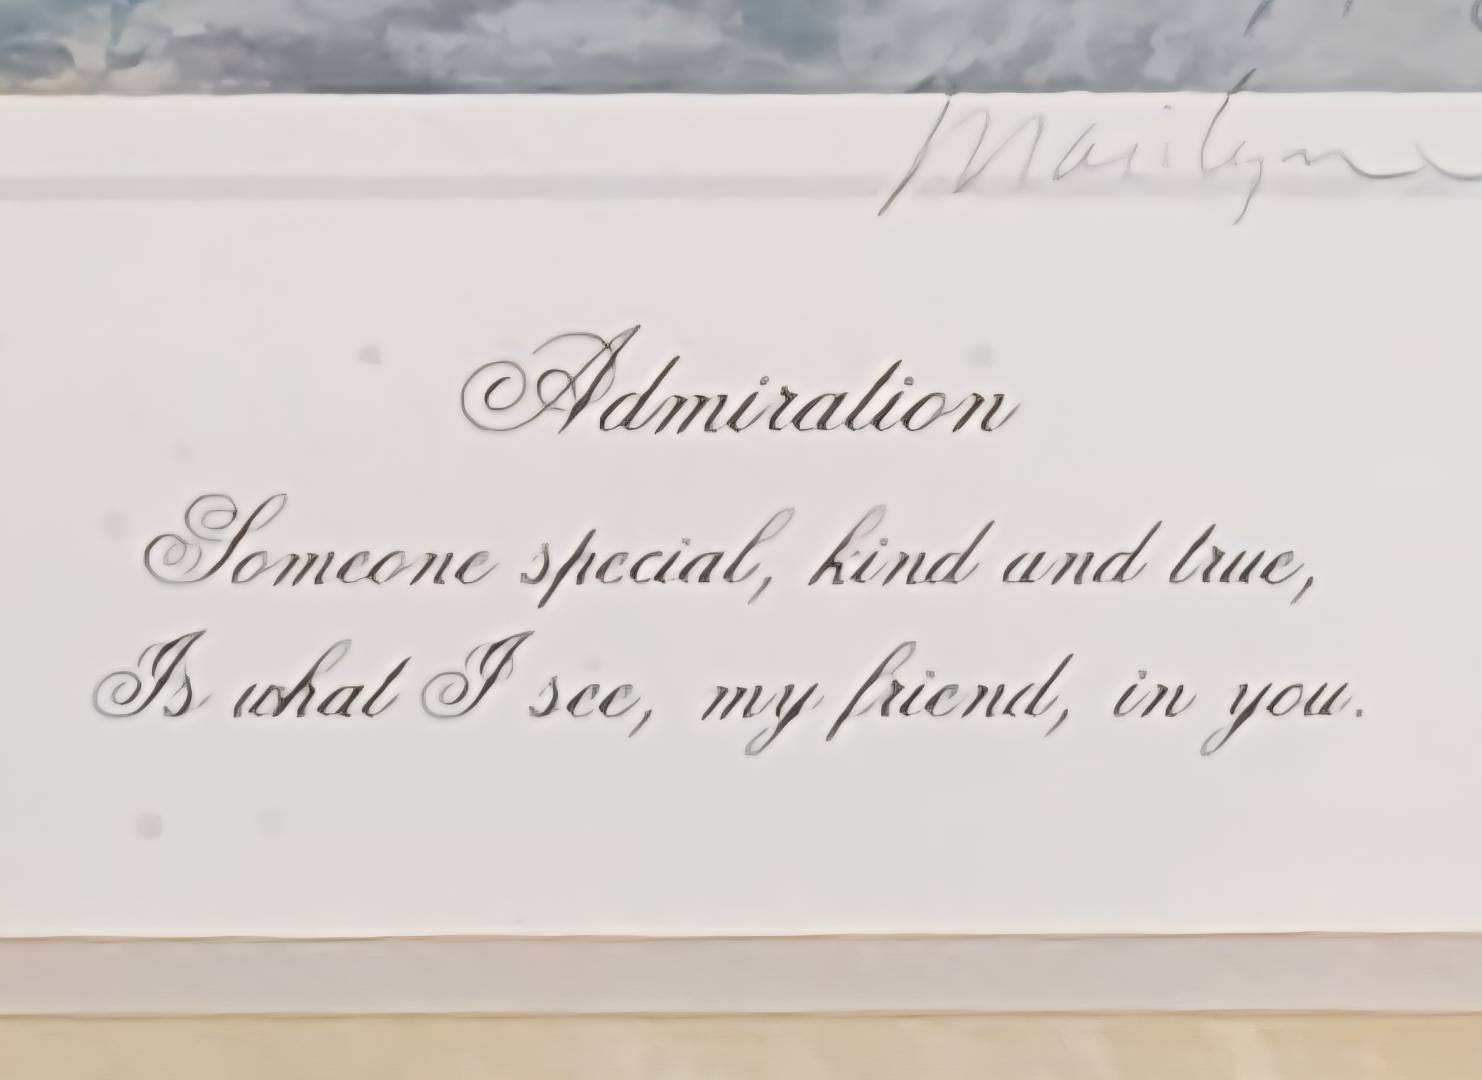 Marilyn
Admiration
Someone special, kind and true,
Is what I see, my friend, in you.